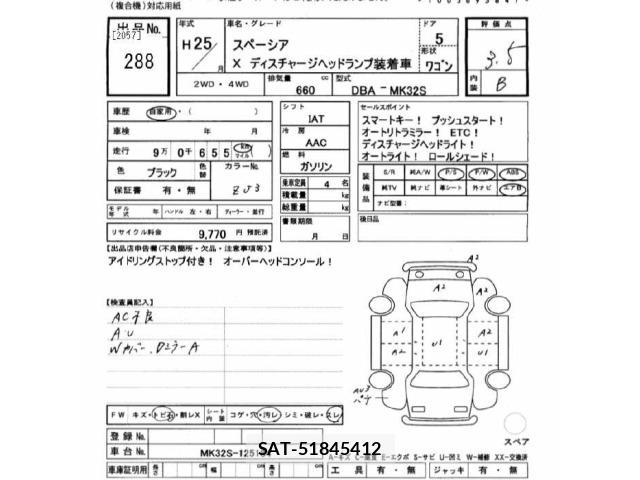 (複合機)対応用紙
出品No.
[2057]
288
年式
H25/
車名・グレード
スペーシア
X ディスチャージヘッドランプ装着車
ドア
5
形状
ワゴン
評価点
3.5
内装
B
2WD・4WD
排気量
660
cc
型式
DBA－MK32S
車歴
自家用・( )
車検
年 月
走行
9万0千655
km
マイル
色
ブラック
色替
カラーNo.
ZJ3
保証書
有・無
シフト
IAT
冷房
AAC
燃料
ガソリン
乗車定員 4 名
積載量 kg
総重量 kg
書類期限
月 日
セールスポイント
スマートキー! プッシュスタート!
オートリトラミラー! ETC!
ディスチャージヘッドライト!
オートライト! ロールシェード!
装備品
S/R 純A/W P/S P/W ABS
純TV 純ナビ 革シート 外ナビ エアB
ナビ型番:
後日品
モデル年式 年 ハンドル 左・右 ディーラー・並行
リサイクル料金 9,770 円 預託済
【出品店申告欄(不良箇所・欠品・注意事項等)】
アイドリングストップ付き! オーバーヘッドコンソール!
【検査員記入】
AC不良
A・U
Wカバー、DミラーA
A2
A2
A2
A1
A2
U1
A2
U1
AU3
FW キズ・トビ石・割レX
シート内装 コゲ・穴・汚レ・シミ・破レ・スレ
登録No.
車台No. MK32S-125
SAT-51845412
車庫証明用 長さ cm 幅 cm 高さ cm
A-キズ E-エクボ S-サビ U-凹ミ W-補修 XX-交換済
スペア
工具 有・無 ジャッキ 有・無